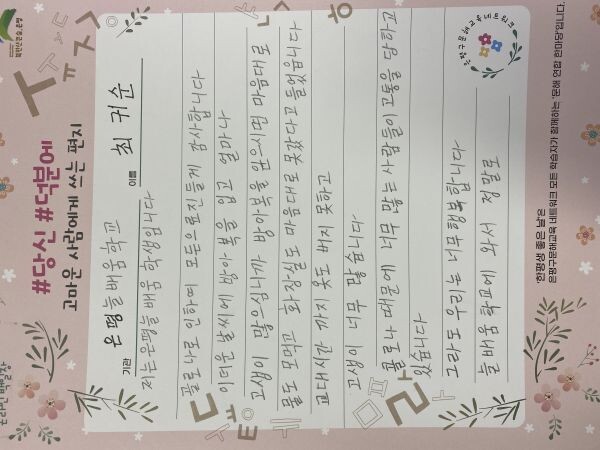 북한산 큰숲, 은평
#당신 #덕분에
고마운 사람에게 쓰는 편지
은평구문해교육네트워크
기관 은평늘배움학교
이름 최귀순
저는은평늘배움 학생입니다
콜로나로 인하여 모든으료진들게 감사합니다
이더운 날씨에 방아복을 입고 얼마나
고생이 많으심니까 방아복을 입으시면 마음대로
물도 모먹고 화장실도 마음대로 못갔다고 들었읍니다
교대시간 까지 옷도 버지 못하고
고생이 너무 많습니다
콜로나 때문에 너무 많는 사람들이 고통을 당하고
있습니다
그라도 우리는 너무행복합니다
늘배움학교에 와서 정말로
한평생 좋은 날'은
은평구문해교육 네트워크 모든 학습자가 함께하는 '문해 연합 한마당'입니다.